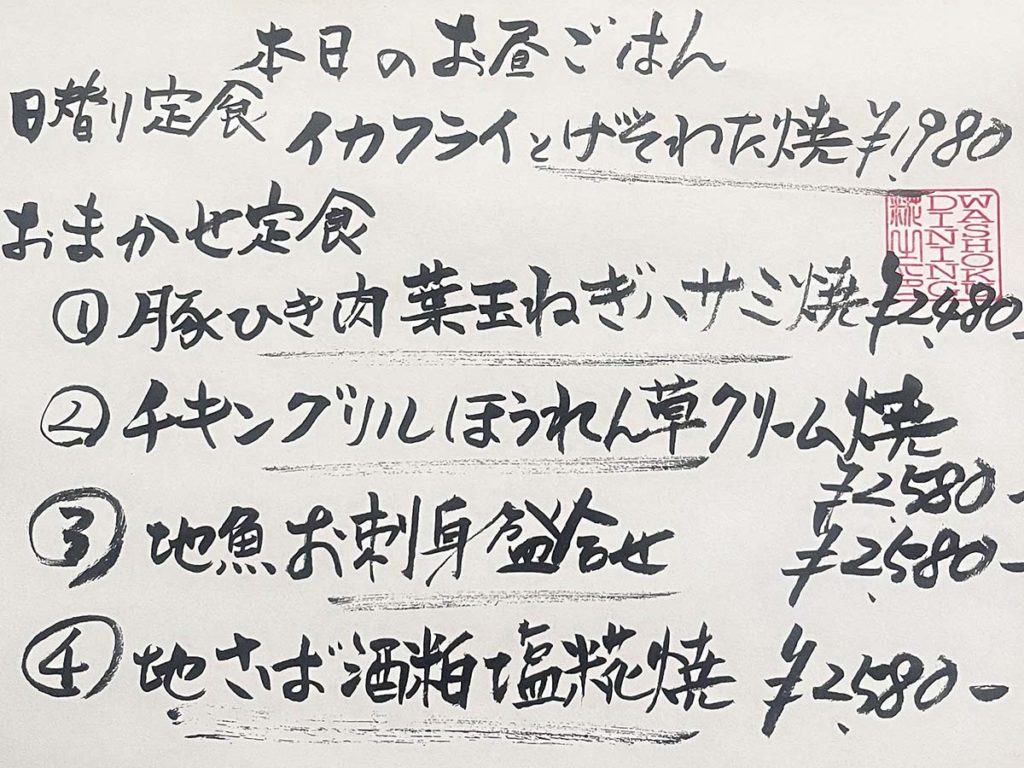 本日のお昼ごはん
日替り定食
イカフライとげそわた焼 ¥1,980
おまかせ定食
① 豚ひき肉葉玉ねぎハサミ焼 ¥2,480-
② チキングリルほうれん草クリーム焼
¥2,580-
③ 地魚お刺身盛合せ ¥2,580-
④ 地さば酒粕塩糀焼 ¥2,580-
WASHOKU
DINING